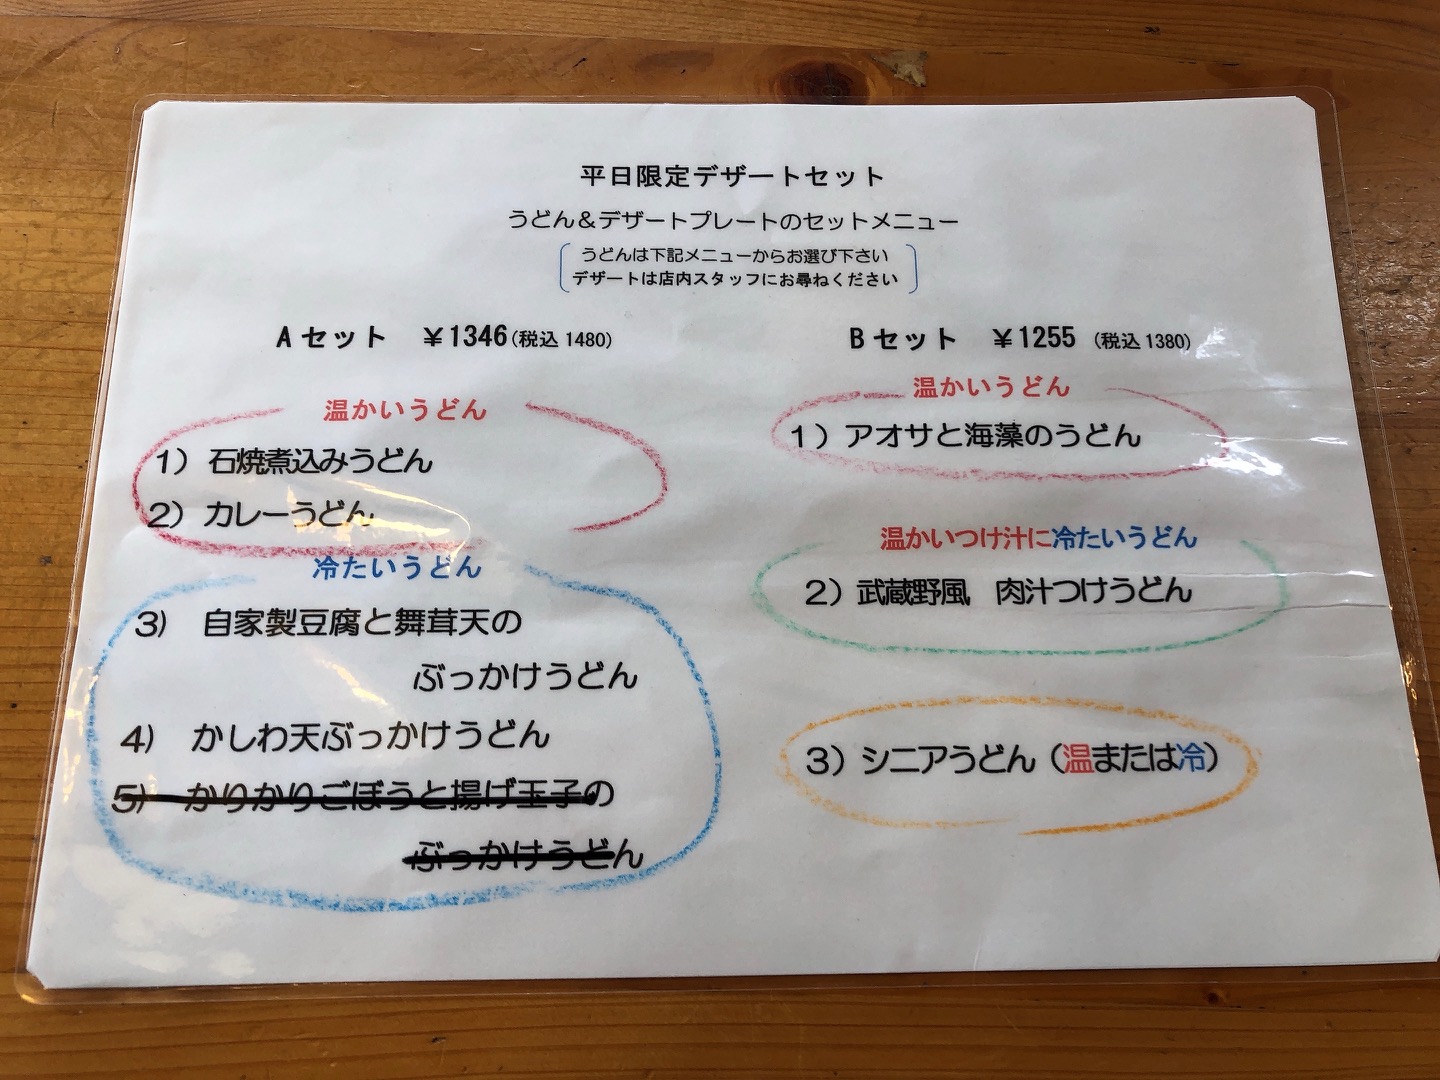 平日限定デザートセット
うどん&デザートプレートのセットメニュー
うどんは下記メニューからお選び下さい
デザートは店内スタッフにお尋ねください
Aセット ¥1346(税込1480)
温かいうどん
1) 石焼煮込みうどん
2) カレーうどん
冷たいうどん
3) 自家製豆腐と舞茸天の
ぶっかけうどん
4) かしわ天ぶっかけうどん
5) かりかりごぼうと揚げ玉子の
ぶっかけうどん
Bセット ¥1255 (税込1380)
温かいうどん
1) アオサと海藻のうどん
温かいつけ汁に冷たいうどん
2) 武蔵野風 肉汁つけうどん
3) シニアうどん(温または冷)